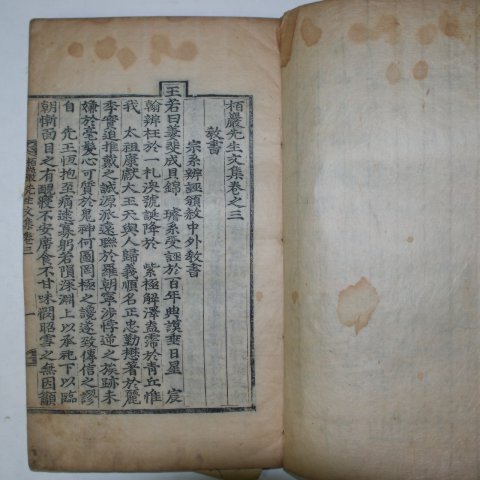 栢巖先生文集卷之三
敎書
宗系辨誣頒敎中外敎書
王若曰萋斐成貝錦 璿系受誣於百年典謨垂日星 宸
翰辨枉於一札渙號誕降於 紫極解澤盍霈於靑丘惟
我 太祖康獻大王天與人歸義順名正忠勤懋著於麗
季實迫推戴之誠源派遠聯於羅朝寧涉悖逆之族跡未
嫌於毫髮心可質於鬼神何圖罔極之讒遂致傳信之謬
自 先王恆抱至痛逮寡躬若隕深淵上以承祀下以臨
朝慚面目之有醜寢不安席食不甘味悶昭雪之無因籲
栢巖先生文集卷三
一